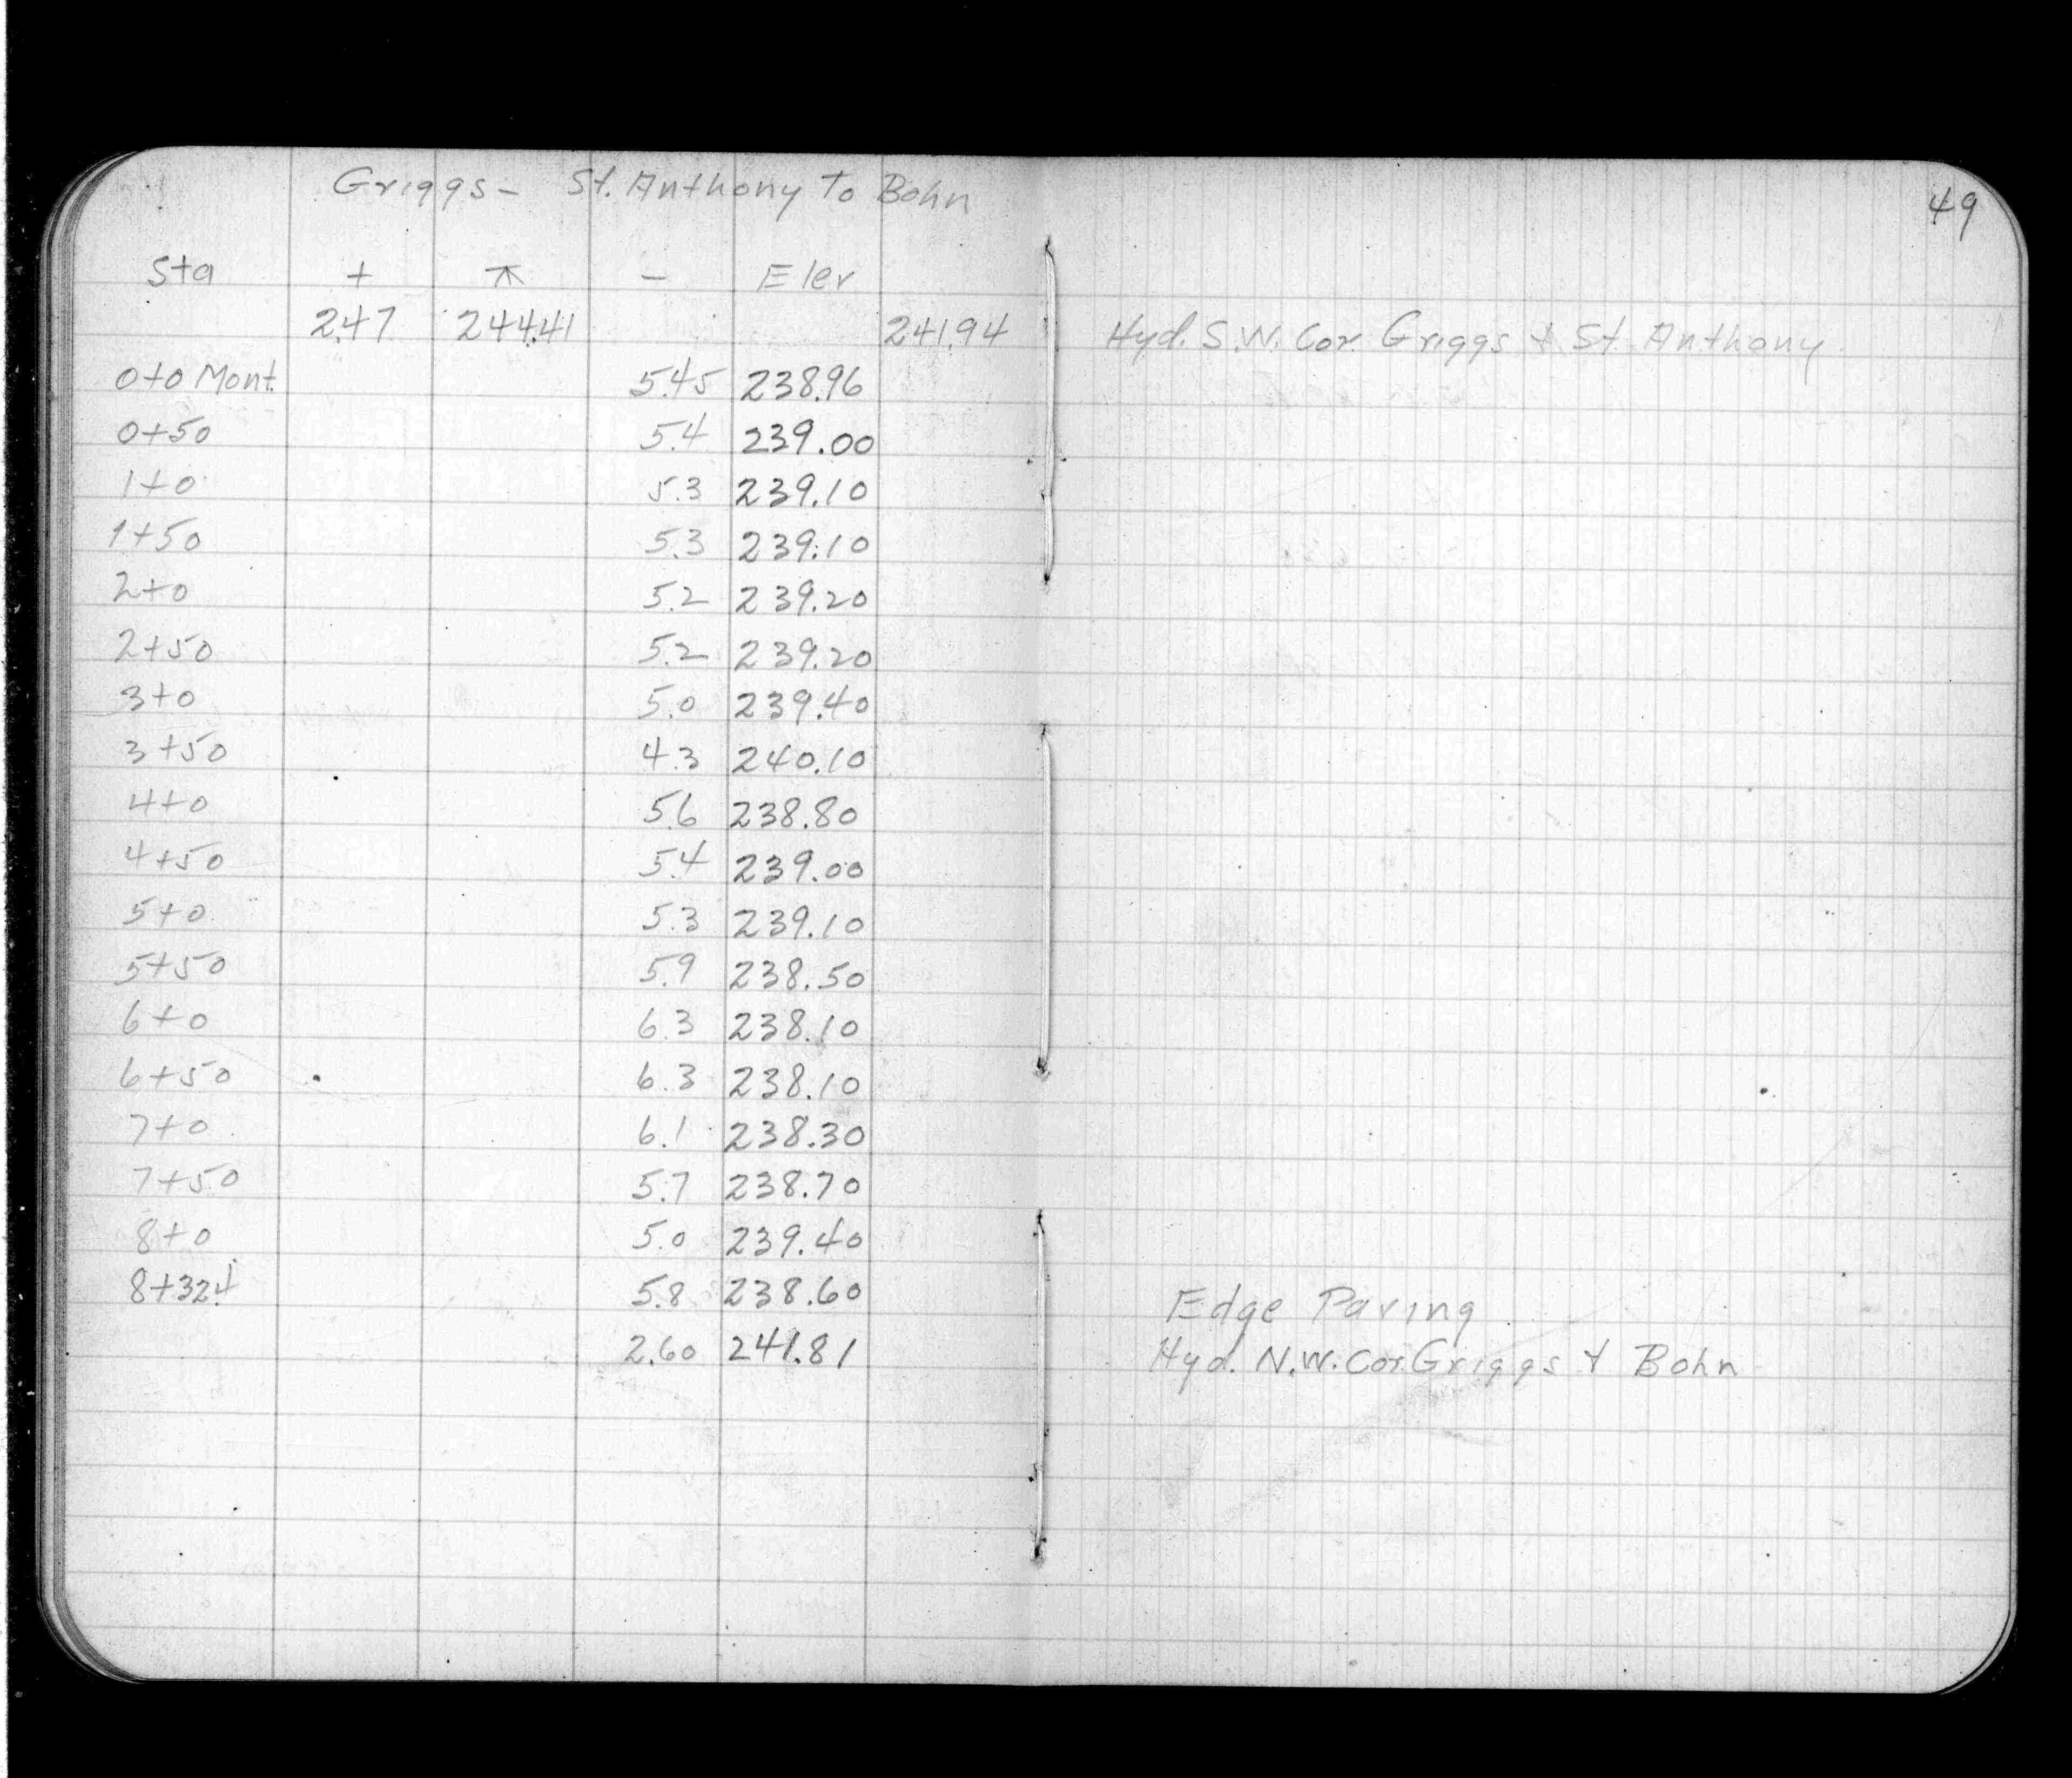 Griggs - St. Anthony To Bohn
49
Sta + ⊼ - Elev
2.47 244.41 241.94 Hyd. S.W. Cor. Griggs & St. Anthony
0+0 Mont. 5.45 238.96
0+50 5.4 239.00
1+0 5.3 239.10
1+50 5.3 239.10
2+0 5.2 239.20
2+50 5.2 239.20
3+0 5.0 239.40
3+50 4.3 240.10
4+0 5.6 238.80
4+50 5.4 239.00
5+0 5.3 239.10
5+50 5.9 238.50
6+0 6.3 238.10
6+50 6.3 238.10
7+0 6.1 238.30
7+50 5.7 238.70
8+0 5.0 239.40
8+32.4 5.8 238.60 Edge Paving
2.60 241.81 Hyd. N.W. Cor. Griggs & Bohn